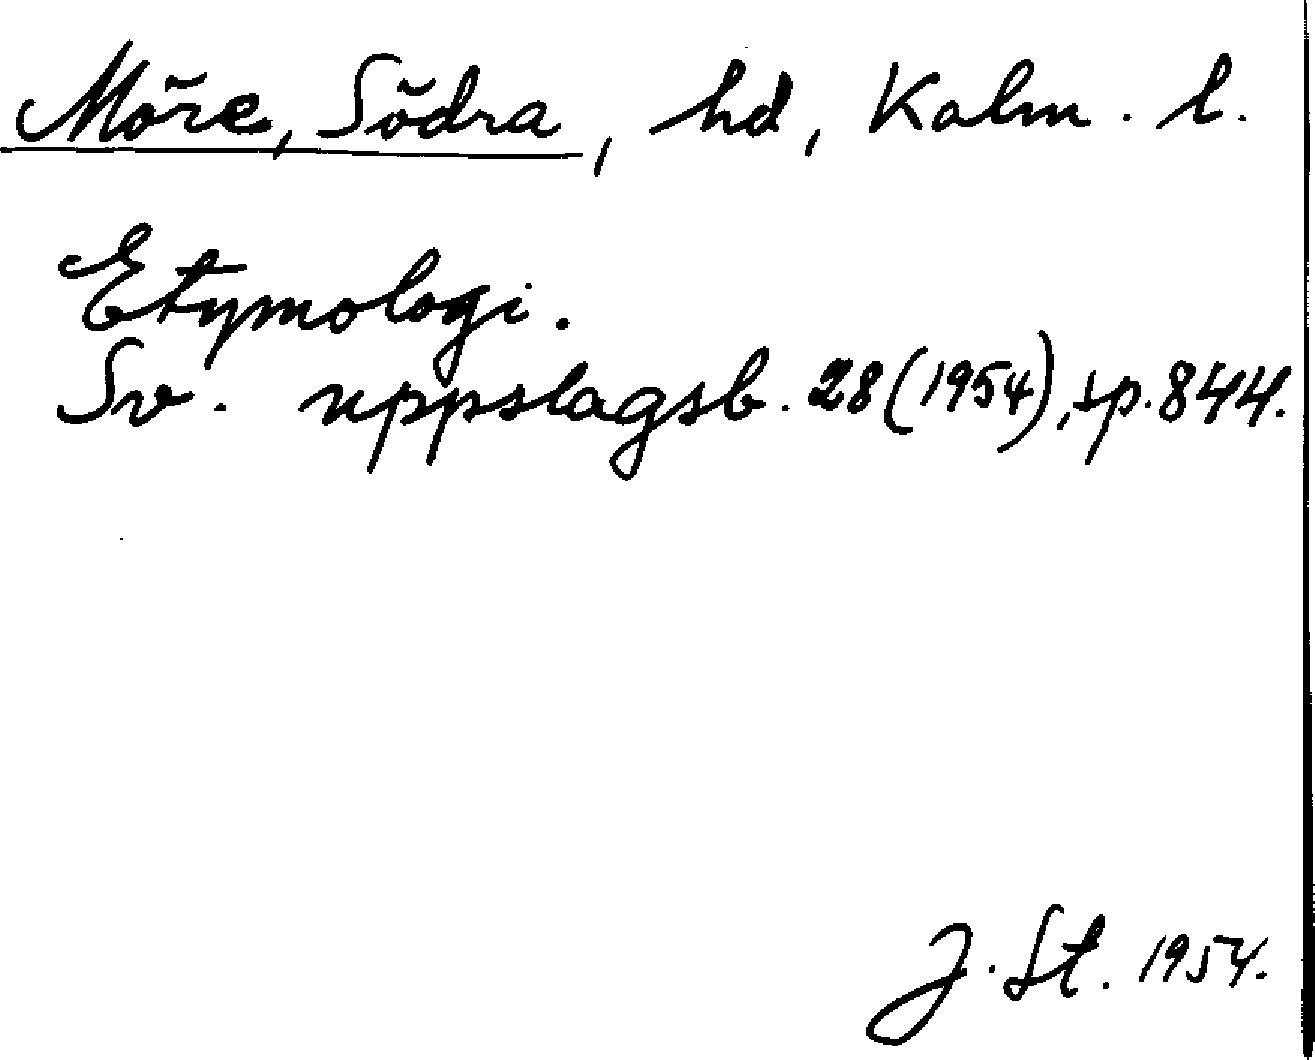 Möre, Södra, hd, Kalm. l.
Etymologi.
Sv. uppslagsb. 28 (1954), sp. 844.
J. St. 1954.